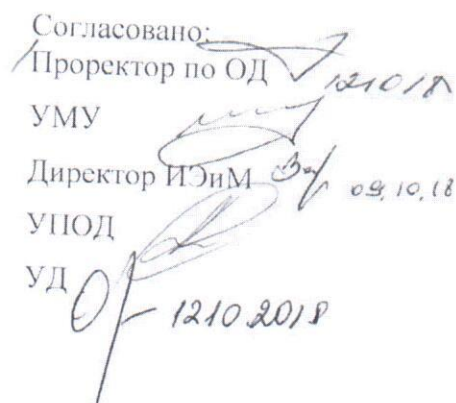 Согласовано:
Проректор по ОД 121018
УМУ
Директор ИЭиМ 09.10.18
УПОД
УД
12102018